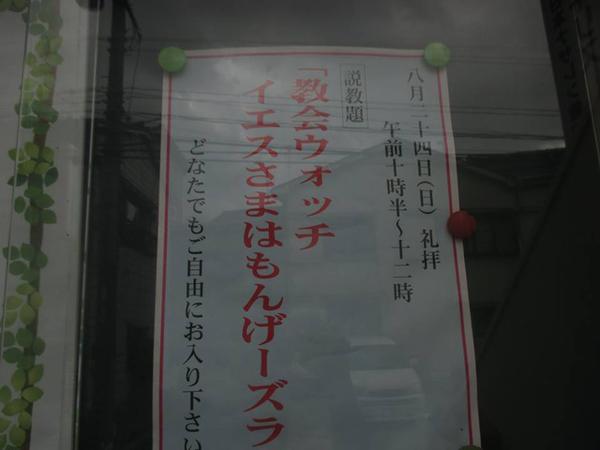 八月二十四日(日) 礼拝
午前十時半～十二時
説教題
「教会ウォッチ
イエスさまはもんげーズラ
どなたでもご自由にお入り下さい